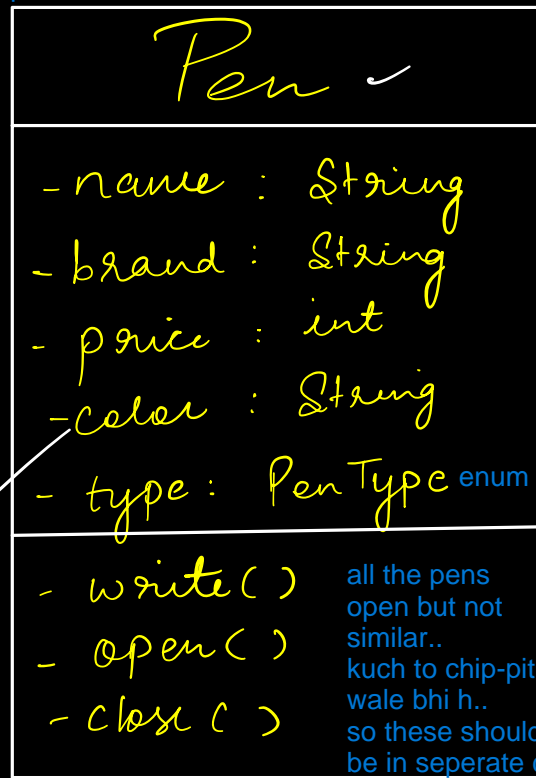 Pen
- name : String
- brand : String
- price : int
- color : String
- type : PenType enum
- write()
- open()
- close()
all the pens
open but not
similar..
kuch to chip-pit
wale bhi h..
so these should
be in seperate